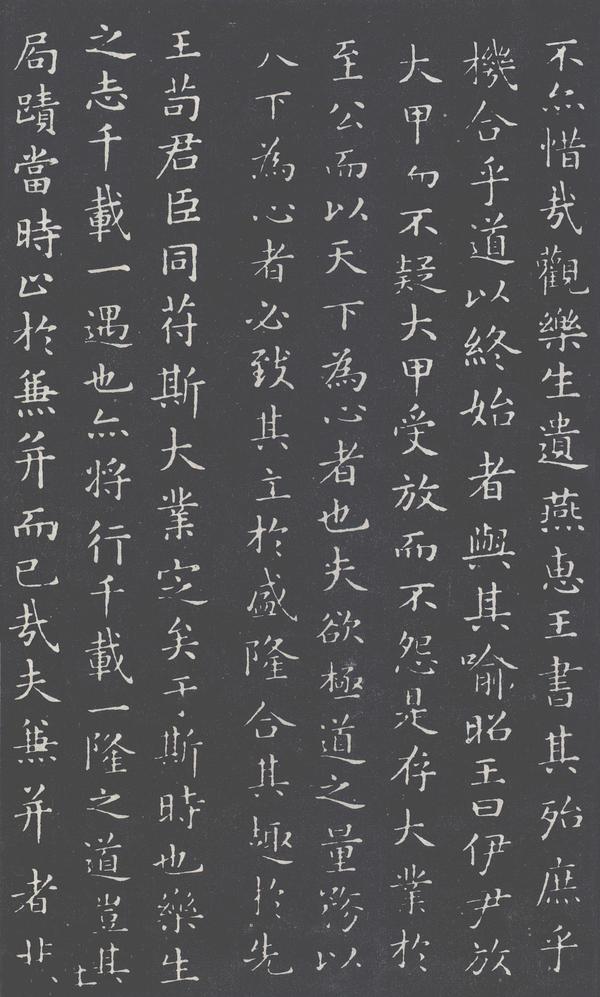 不亦惜哉觀樂生遺燕惠王書其殆庶乎
機合乎道以終始者與其喻昭王曰伊尹放
大甲而不疑大甲受放而不怨是存大業於
至公而以天下為心者也夫欲極道之量務以
天下為心者必致其主於盛隆合其趣於先
王苟君臣同符斯大業定矣于斯時也樂生
之志千載一遇也亦將行千載一隆之道豈其
局蹟當時止於兼并而已哉夫兼并者非